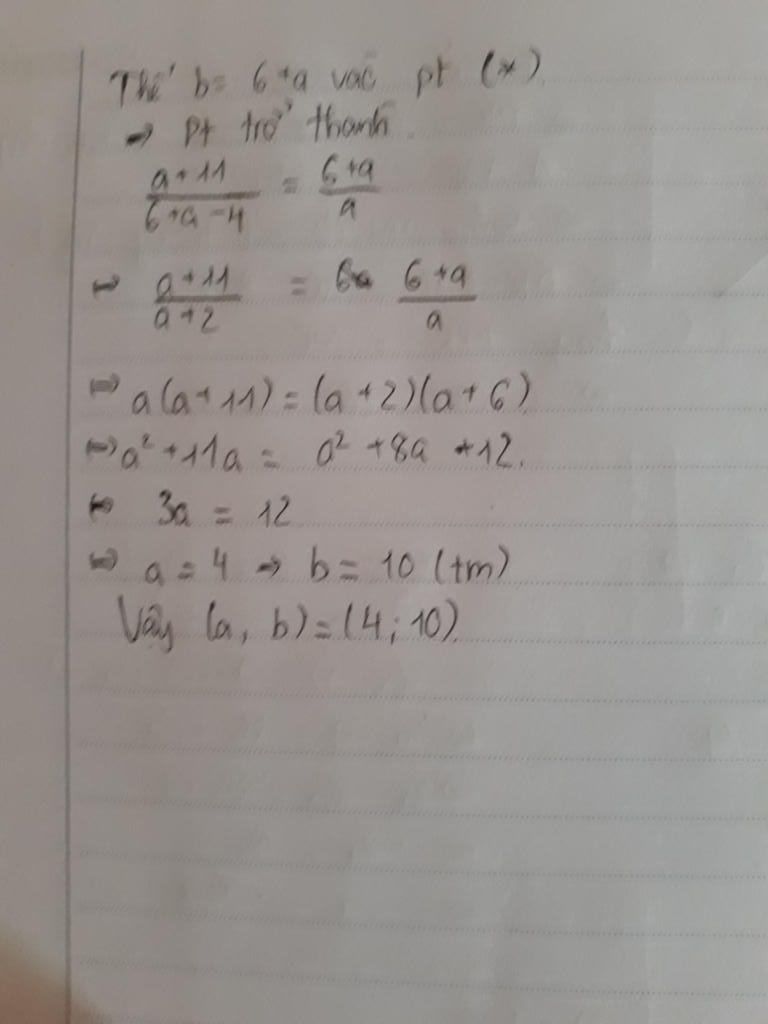 Thế b = 6 + a vào pt (*)
→ Pt trở thành
a + 11 / 6 + a - 4 = 6 + a / a
⇔ a + 11 / a + 2 = 6 + a / a
⇔ a(a + 11) = (a + 2)(a + 6)
⇔ a² + 11a = a² + 8a + 12.
⇔ 3a = 12
⇔ a = 4 → b = 10 (tm)
Vậy (a, b) = (4; 10).